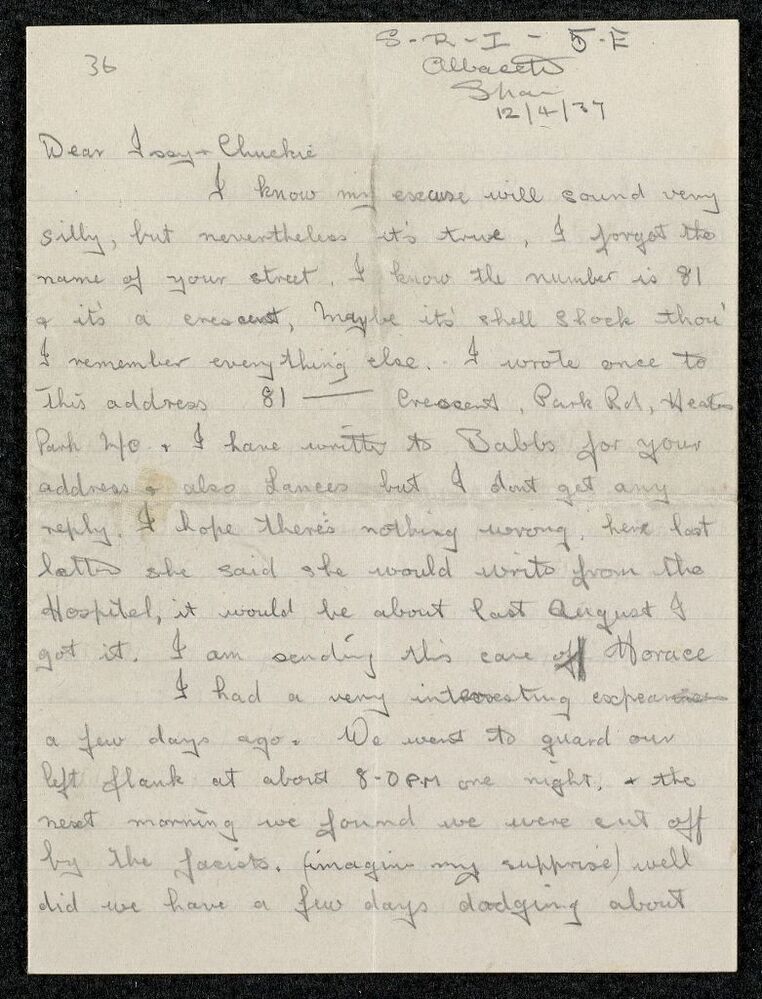 36
S-R-I - 5-E
Albacete
Spain
12/4/37
Dear Issy + Chuckie
I know my excuse will sound very
silly, but nevertheless it's true, I forgot the
name of your street. I know the number is 81
& it's a crescent, maybe its' shell shock thou'
I remember everything else. I wrote once to
this address 81 —— Crescent, Park Rd, Heaton
Park M/c & I have written to Babbs for your
address & also Lances but I dont get any
reply. I hope there's nothing wrong, here last
letter she said she would write from the
Hospital, it would be about last August I
got it. I am sending this care of Horace
I had a very interesting
a few days ago. We went to guard our
left flank at about 8-0 PM one night, & the
next morning we found we were cut off
by the facists. (imagine my supprise) well
did we have a few days dodging about